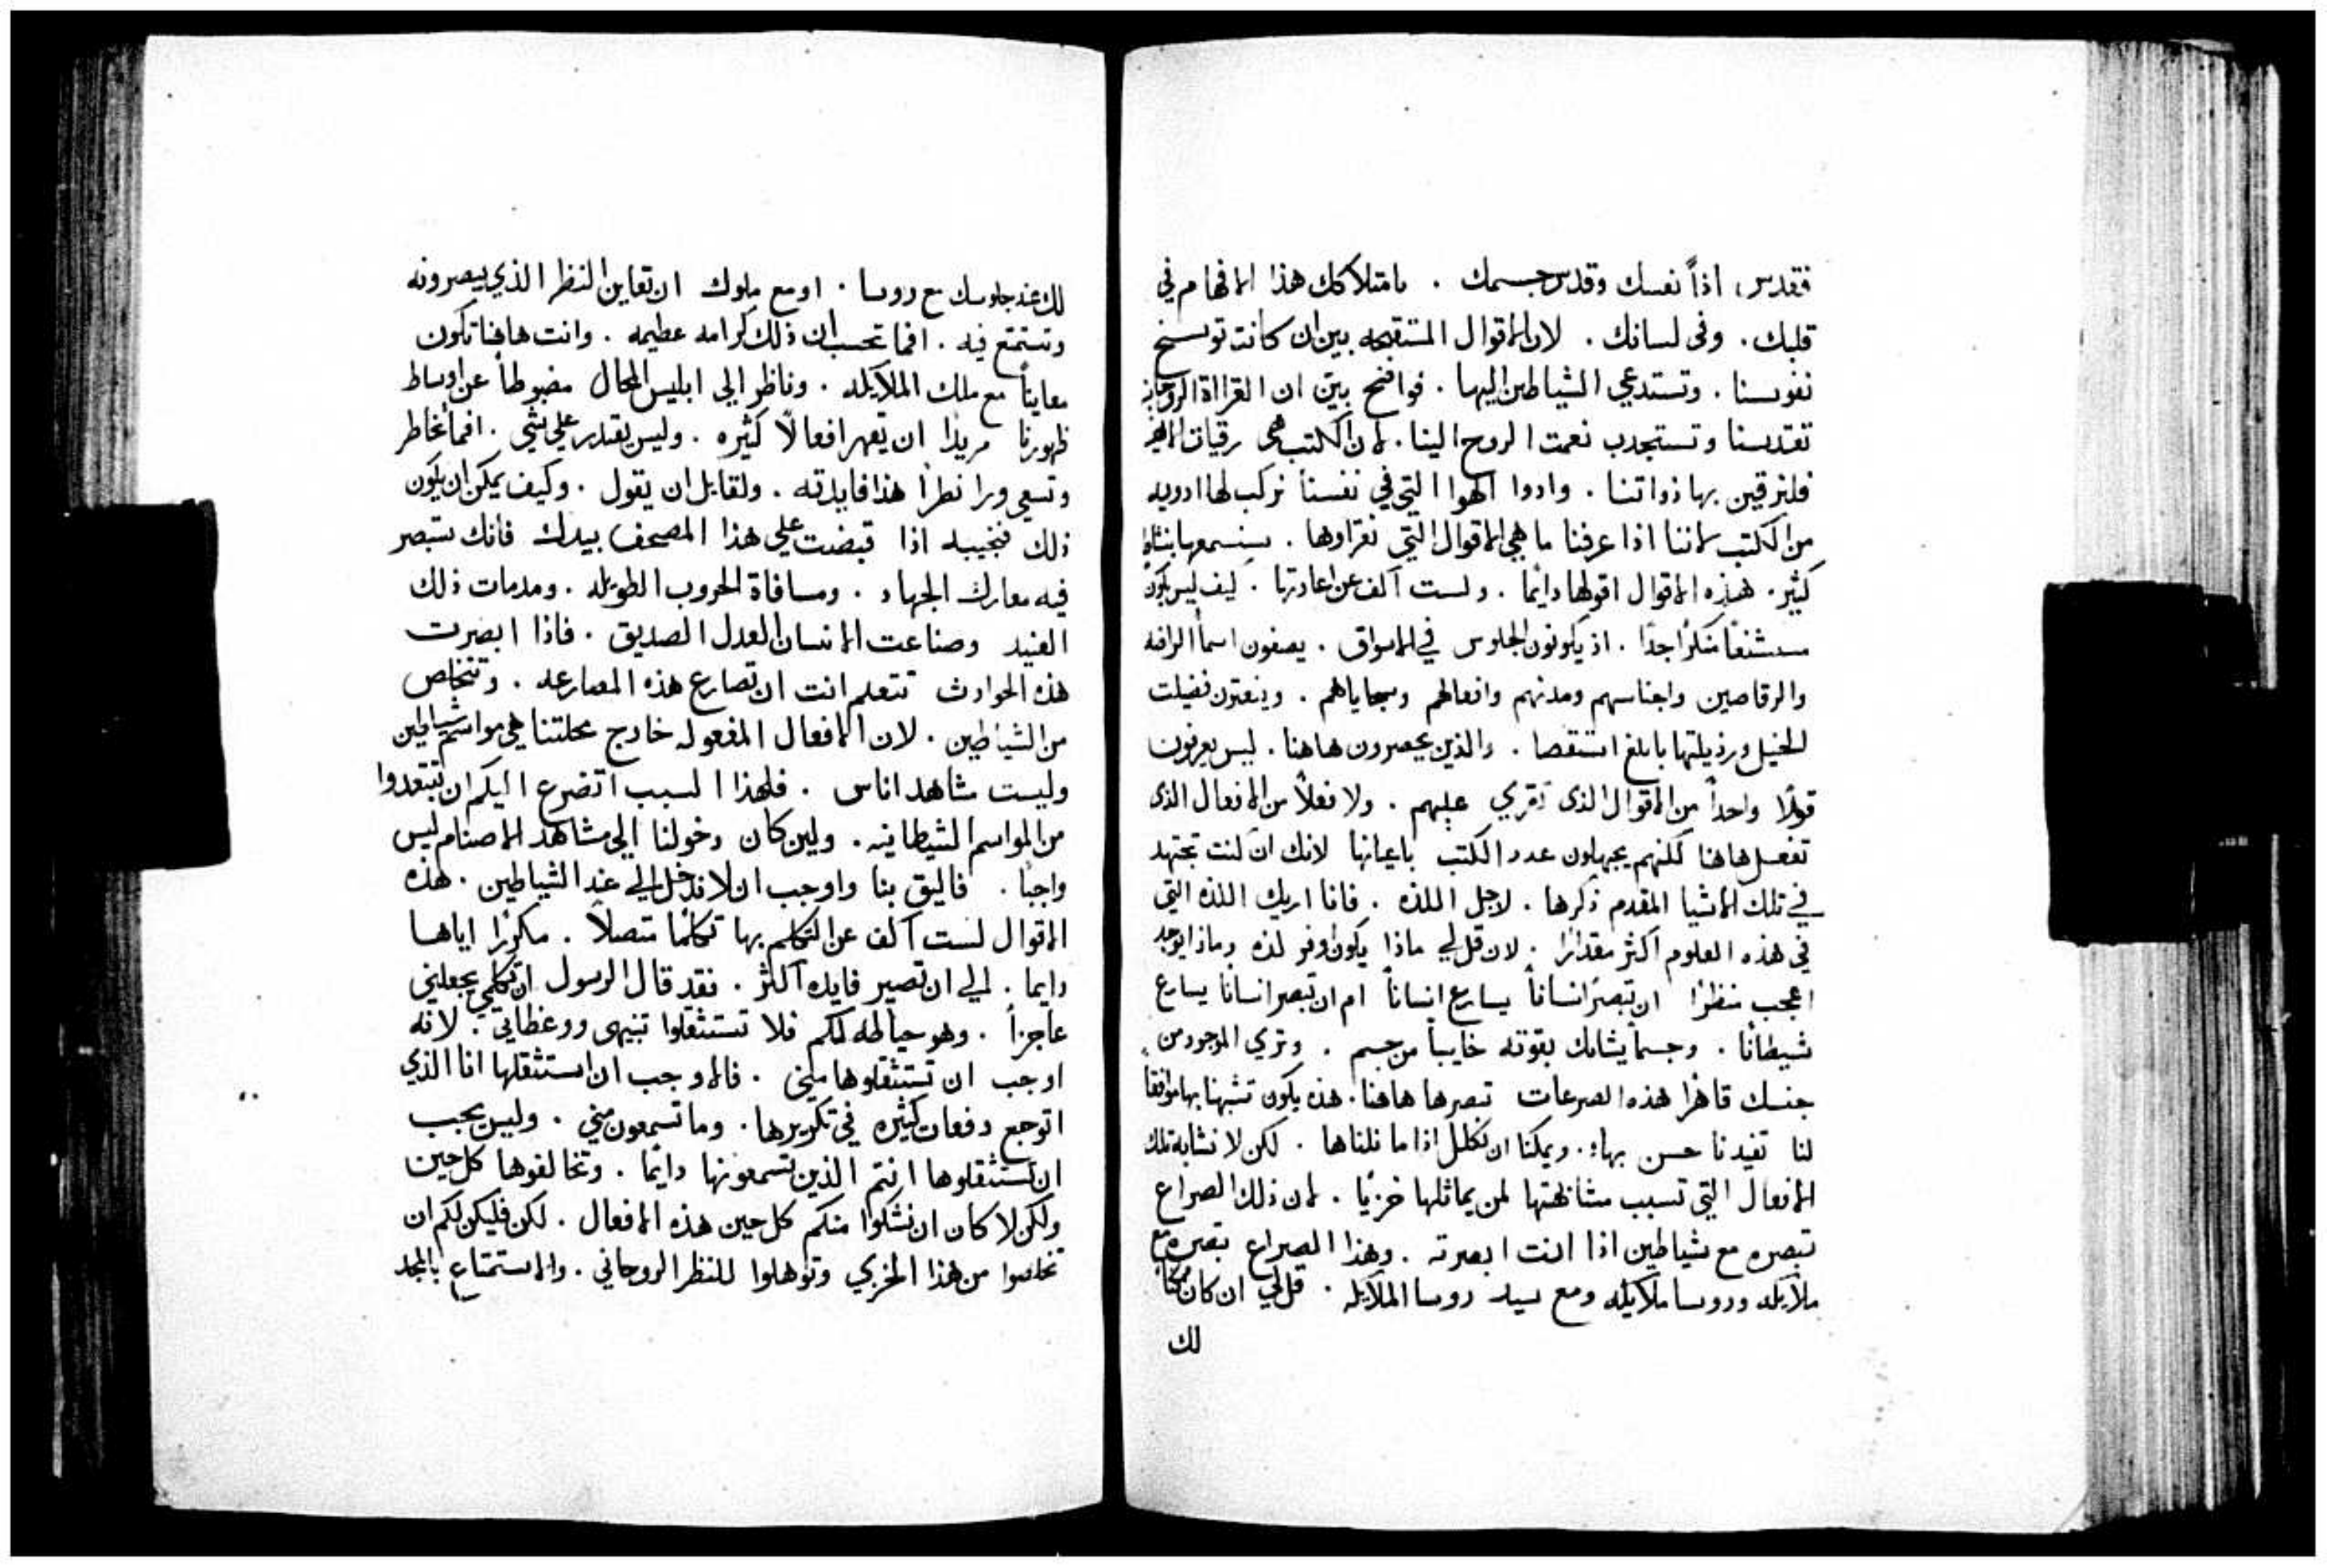 فقدس اذاً نفسك وقدس جسمك . بامتلاكك هذا الافهام في
قلبك . وفى لسانك . لان الاقوال المستقبحه بين ان كانت توسخ
نفوسنا . وتستدعي الشياطين اليها . فواضح بيّن ان القرااة الروحانيه
تقدسنا وتستجدب نعمت الروح الينا . لان الكتب هى رقيات
فلنرقين بها ذواتنا . وادوا الهوا التي في نفسنا نركب لها ادويه
من الكتب لاننا اذا عرفنا ما هي الاقوال التي نقراوها . سنسمعها بنشاط
كثير . هذه الاقوال اقولها دايما . ولست آلف عن اعادتها . كيف ليس يكون
مستشنعًا منكرًا جدًا . اذ يكونون الجلوس في الاسواق . يصفون اسما الرافه
والرقاصين واجناسهم ومدنهم وافعالهم وسجاياهم . وينعتون فضيلت
الخيل ورذيلتها بابلغ استقصا . والذين يحصرون هاهنا . ليس يعرفون
قولًا واحداً من الاقوال الذى تقري عليهم . ولا فعلاً من الافعال الذى
تفعل هاهنا لكنهم يجهلون عدد الكتب باعيانها لانك ان كنت تجتهد
في تلك الاشيا المقدم ذكرها . لاجل اللذه . فانا اريك اللذه التي
في هذه العلوم اكثر مقدارًا . لان قل لي ماذا يكون اوفر لذه وماذا يوجد
اعجب منظرًا ان تبصر انساناً يسارع انساناً ام ان تبصر انسانًا يسارع
شيطانًا . وجسماً يشابك بقوته خايباً من جسم . وتري الموجود من
جنسك قاهرًا هذه الصرعات تبصرها هاهنا . هذه يكون تشبهنا بها موافقاً
لنا تفيدنا حسن بهاء . ويمكنا ان نكلل اذا ما نلناها . لكن لا نشابه تلك
الافعال التي تسبب مشابهتها لمن يماثلها خزيًا . لان ذلك الصراع
تبصره مع شياطين اذا انت ابصرته . وهذا الصراع تبصره مع
ملايكه وروسا ملايكه ومع سيد روسا الملايكه . قل لي ان كان ممكنًا
لك
لك عند جلوسك مع روسا . او مع ملوك ان تعاين النظر الذي يبصرونه
وتستمتع فيه . افما تحسب ان ذلك كرامه عظيمه . وانت هاهنا تكون
معايناً مع ملك الملايكه . وناظر الي ابليس المحال مضبوطاً عن اوساط
ظهورنا مريدًا ان يقهر افعالًا كثيره . وليس يقتدر علي شي . افما تخاطر
وتسعى ورا نظرًا هذا فايدته . ولقابل ان يقول . وكيف يمكن ان يكون
ذلك فنجيبه اذا قبضت علي هذا المصحف بيدك فانك ستبصر
فيه معارك الجهاد . ومسافاة الحروب الطويله . ومدمات ذلك
العنيد وصناعت الانسان العدل الصديق . فاذا ابصرت
هذه الحوادث تتعلم انت ان تصارع هذه المصارعه . وتتخلص
من الشياطين . لان الافعال المفعوله خارج محلتنا هي مواسم شياطين
وليست مشاهد اناس . فلهذا السبب اتضرع اليكم ان تبتعدوا
من المواسم الشيطانيه . ولين كان دخولنا الي مشاهد الاصنام ليس
واجبًا . فاليق بنا واوجب ان لا ندخل الي عند الشياطين . هذه
الاقوال لست آلف عن التكلم بها تكلمًا متصلاً . مكررًا اياها
دايما . الي ان تصير فايده اكثر . فقد قال الرسول ان تكلمي يجعلني
عاجزاً . وهو حياطه لكم فلا تستثقلوا تنبيهى ووعظاتي . لانه
اوجب ان تستثقلوها مني . فالاوجب ان استثقلها انا الذي
اتوجع دفعات كثيره في تكريرها . وما تسمعون مني . وليس يجب
ان تستثقلوها انتم الذين تسمعونها دايمًا . وتخالفوها كل حين
ولكن لا كان ان نشكوا منكم كل حين هذه الافعال . لكن فليكن لكم ان
تخلصوا من هذا الخزي وتوهلوا للنظر الروحاني . والاستمتاع بالمجد